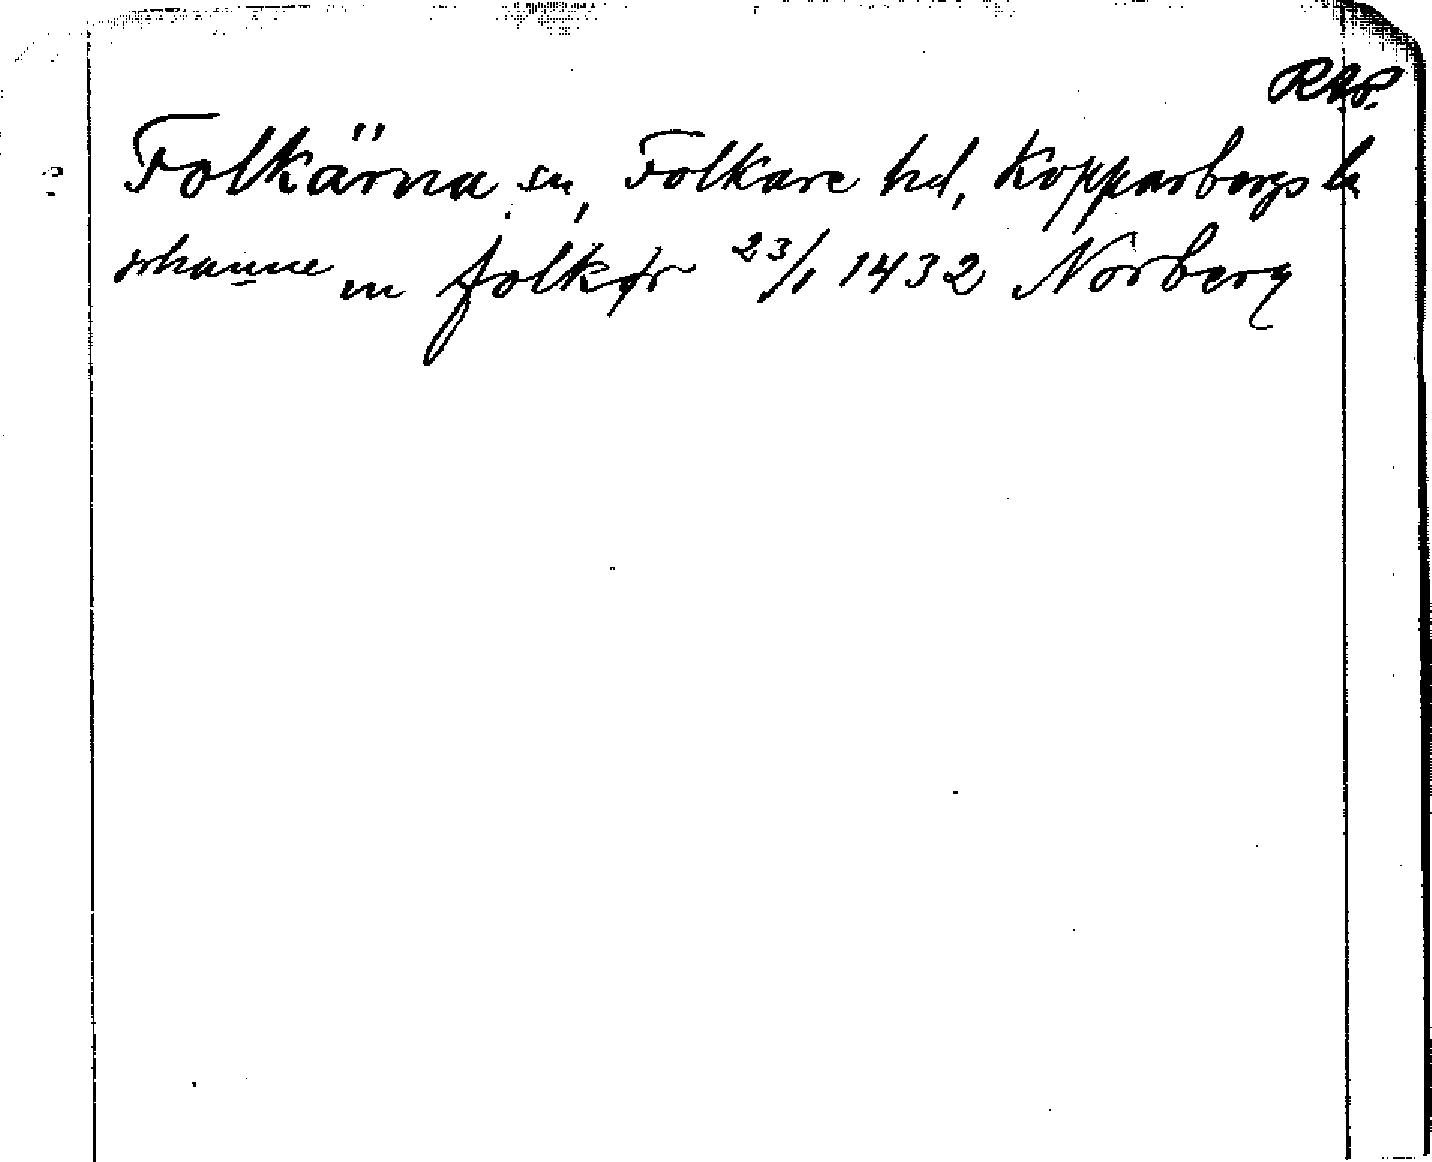 RAP.
Folkärna sn, Folkare hd, Kopparbergs ln
johanne in folkør 23/1 1432 Norberg